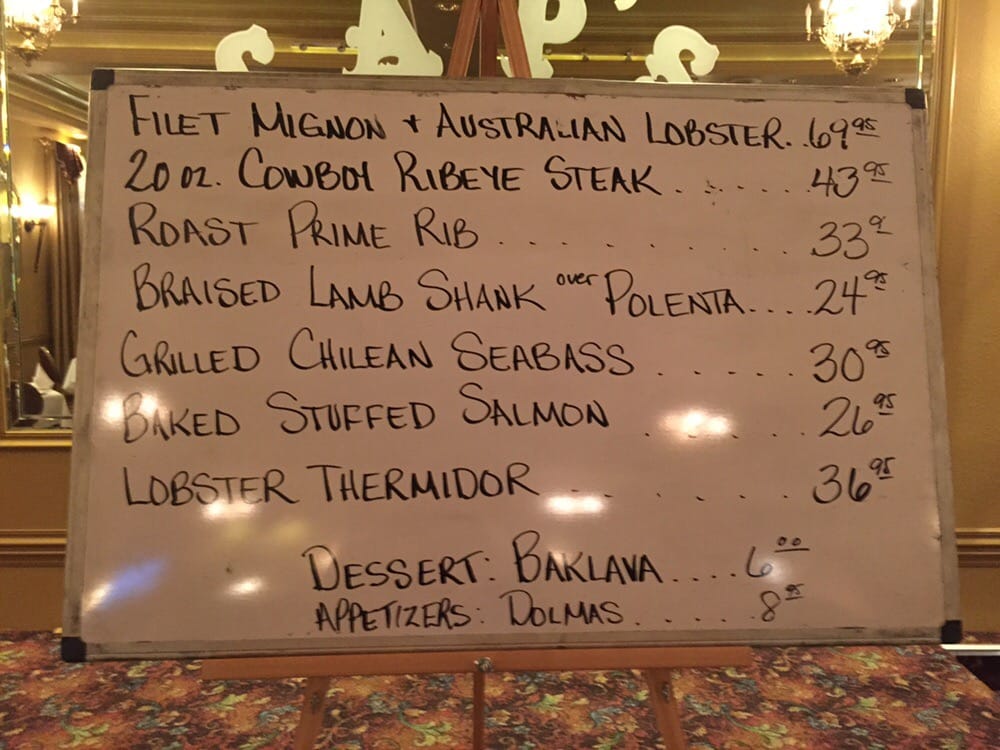 FILET MIGNON + AUSTRALIAN LOBSTER. . 69 95
20 oz. COWBOY RIBEYE STEAK . . . . . . . 43 95
ROAST PRIME RIB . . . . . . . . . 33
BRAISED LAMB SHANK over POLENTA. . . . 24 95
GRILLED CHILEAN SEABASS . . . . . . 30 95
BAKED STUFFED SALMON . . . . . 26 95
LOBSTER THERMIDOR . . . . . . 36 95
DESSERT: BAKLAVA . . . . 6 00
APPETIZERS: DOLMAS . . . . . . 8 95